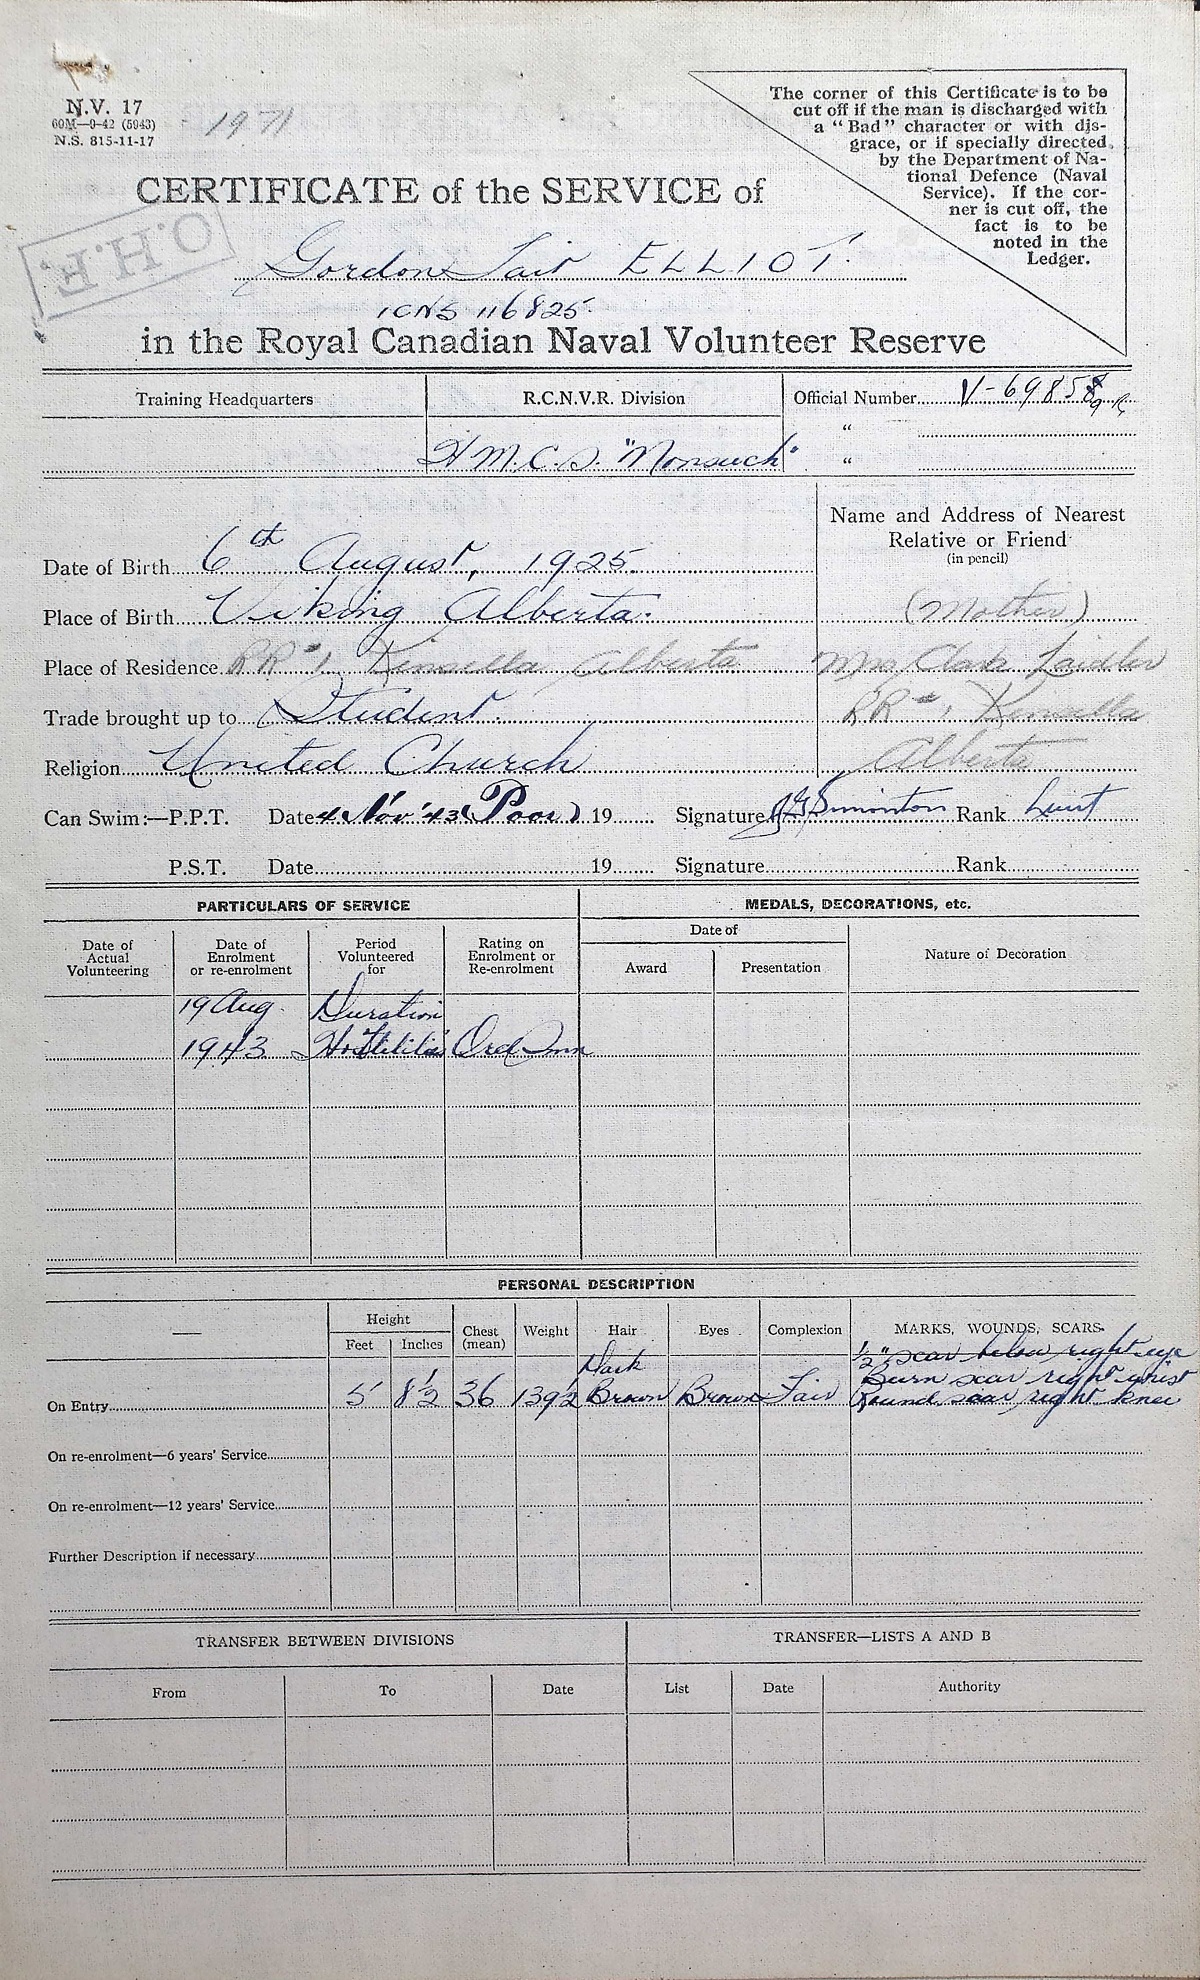 N.V. 17
60M—9-42 (5943)
N.S. 815-11-17
1971
The corner of this Certificate is to be
cut off if the man is discharged with
a "Bad" character or with dis-
grace, or if specially directed
by the Department of Na-
tional Defence (Naval
Service). If the cor-
ner is cut off, the
fact is to be
noted in the
Ledger.
CERTIFICATE of the SERVICE of
O.H.F.
Gordon Tait ELLIOT.
116825
in the Royal Canadian Naval Volunteer Reserve
Training Headquarters R.C.N.V.R. Division Official Number V-6985
H.M.C.S. "Nonsuch" "
"
Name and Address of Nearest
Relative or Friend
(in pencil)
Date of Birth 6th August, 1925.
Place of Birth Viking Alberta. (Mother)
Place of Residence RR #1, Kinsella Alberta Mrs Clark Laidler
Trade brought up to Student. RR #1 Kinsella
Religion United Church Alberta
Can Swim:—P.P.T. Date 4 Nov '43 (Poor) 19 Signature Simonton Rank Lieut
P.S.T. Date 19 Signature Rank
PARTICULARS OF SERVICE MEDALS, DECORATIONS, etc.
Date of Actual Volunteering Date of Enrolment or re-enrolment Period Volunteered for Rating on Enrolment or Re-enrolment Date of Nature of Decoration
Award Presentation
19 Aug. Duration
1943 Hostilities Ord Smn
PERSONAL DESCRIPTION
— Height Chest (mean) Weight Hair Eyes Complexion MARKS, WOUNDS, SCARS.
Feet Inches
Dark 1/2" scar below right eye
Burn scar right wrist
On Entry 5' 8½ 36 139½ Brown Brown Fair Round scar right knee
On re-enrolment—6 years' Service
On re-enrolment—12 years' Service
Further Description if necessary
TRANSFER BETWEEN DIVISIONS TRANSFER—LISTS A AND B
From To Date List Date Authority